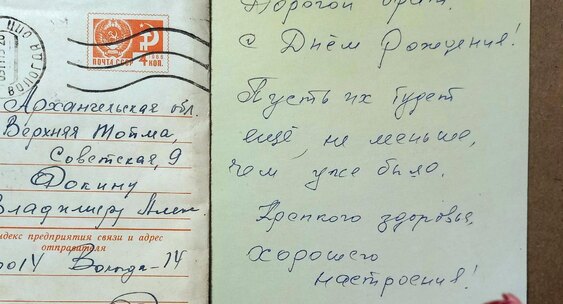 ПОЧТА СССР
4 КОП.
Архангельская обл.
Верхняя Тойма,
Советская, 9
Фокину
Владимиру Алек.
индекс предприятия связи и адрес
отправителя
0014 Вологда-14
Дорогой брат!
С Днём Рождения!
Пусть их будет
ещё, не меньше,
чем уже было.
Крепкого здоровья,
хорошего
настроения!